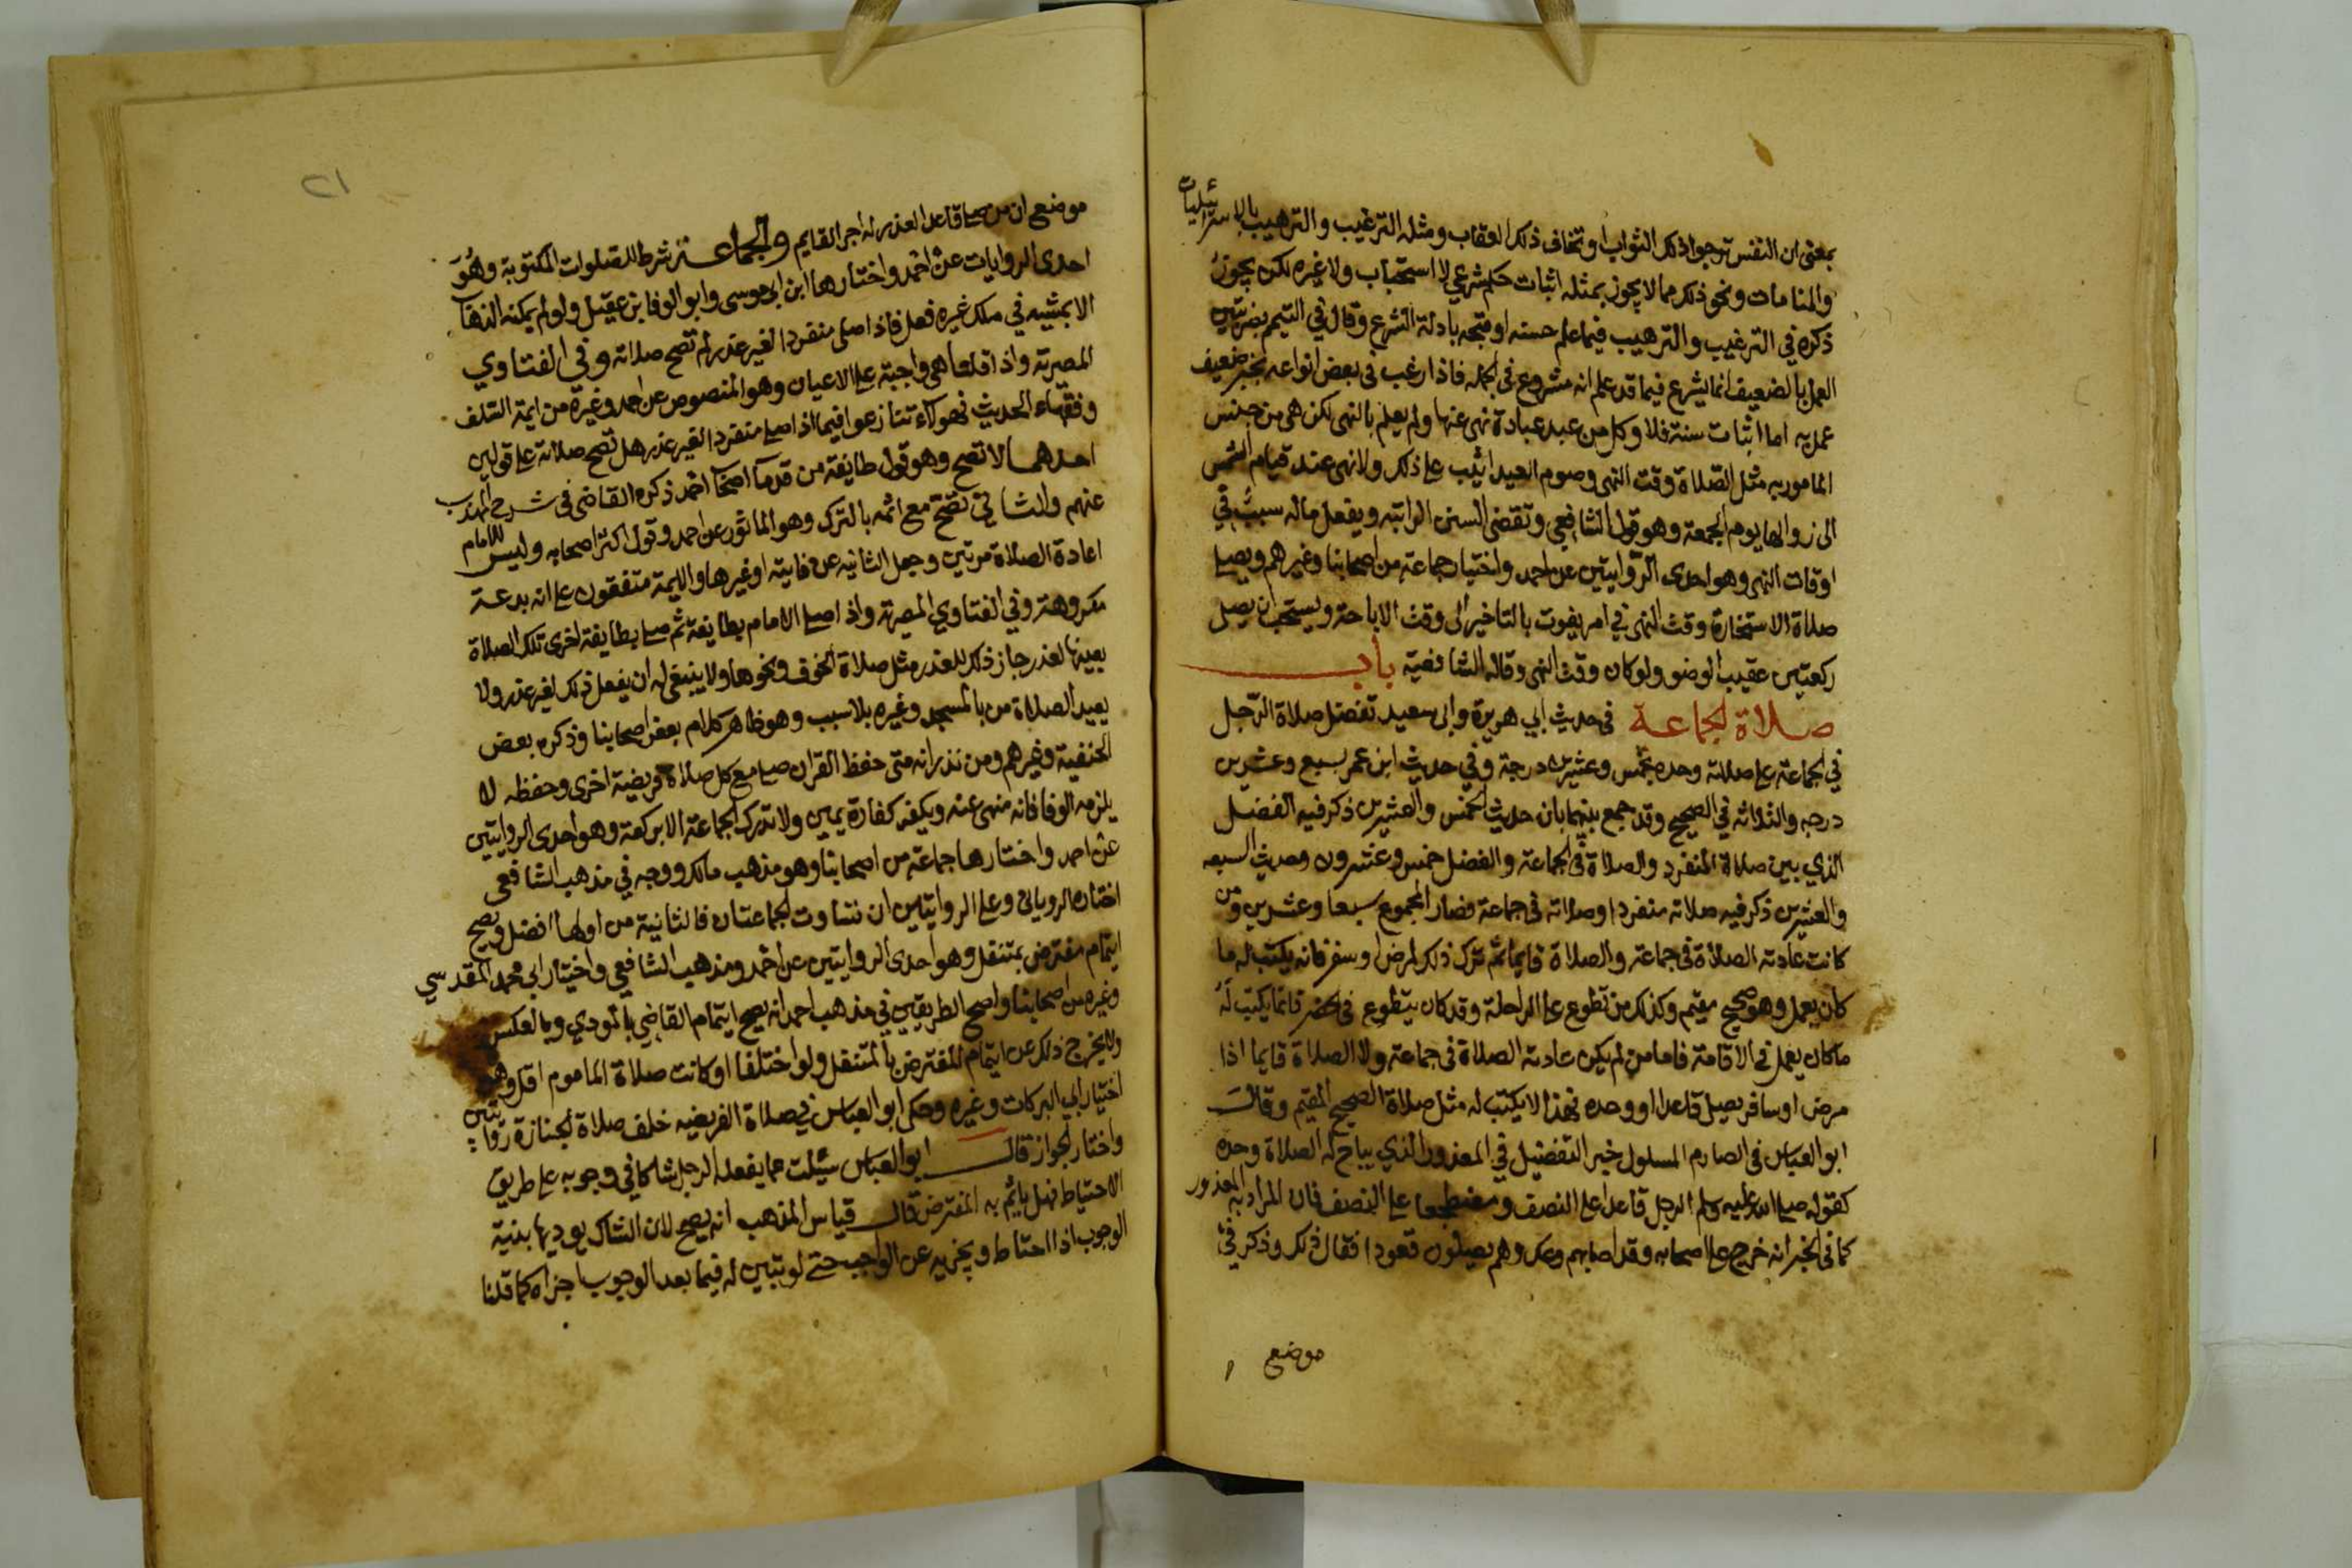 بمعنى ان النفس ترجوا ذلك الثواب او تخاف ذلك العقاب ومثله الترغيب والترهيب بالاسرائيليات
والمنامات ونحو ذلك مما لا يجوز بمثله اثبات حكم شرعي لا استحباب ولا غيره لكن يجوز
ذكره في الترغيب والترهيب فيما علم حسنه او قبحه بادلة الشرع وقال في التيمم بضربتين
العمل بالضعيف انما يشرع فيما قد علم انه مشروع في الجمله فاذا رغب في بعض انواعه بخبر ضعيف
عمل به اما اثبات سنة فلا وكل من عبد عبادة نهى عنها ولم يعلم بالنهى لكن هى من جنس
المامور به مثل الصلاة وقت النهى وصوم العيد اثيب على ذلك ولا نهى عند قيام الشمس
الى زوالها يوم الجمعة وهو قول الشافعي وتقضى السنن الراتبه ويفعل ماله سبب في
اوقات النهى وهو احدى الروايتين عن احمد واختيار جماعة من اصحابنا وغيرهم ويصلي
صلاة الاستخارة وقت النهى في امر يفوت بالتاخير الى وقت الاباحة ويستحب ان يصلى
ركعتين عقيب الوضو ولو كان وقت النهى وقاله الشافعية باب
صلاة الجماعة في حديث ابي هريرة وابي سعيد تفضل صلاة الرجل
في الجماعة على صلاته وحده بخمس وعشرين درجة وفي حديث ابن عمر بسبع وعشرين
درجه والثلاثه في الصحيح وقد جمع بينهما بان حديث الخمس والعشرين ذكر فيه الفضل
الذي بين صلاة المنفرد والصلاة في الجماعة والفضل خمس وعشرون وحديث السبعه
والعشرين ذكر فيه صلاته منفردا وصلاته في جماعة فصار المجموع سبعا وعشرين ومن
كانت عادته الصلاة في جماعة والصلاة قايما ثم ترك ذلك لمرض او سفر فانه يكتب له ما
كان يعمل وهو صحيح مقيم وكذلك من تطوع على الراحلة وقد كان يتطوع في الحضر فانما يكتب له
ما كان يعمل في الاقامة فاما من لم يكن عادته الصلاة في جماعة ولا الصلاة قايما اذا
مرض او سافر يصلي قاعدا او وحده فهذا لا يكتب له مثل صلاة الصحيح المقيم وقال
ابو العباس في الصارم المسلول خبر التفضيل في المعذور الذي يباح له الصلاة وحده
كقوله صلى الله عليه وسلم الرجل قاعدا على النصف ومضطجعا على النصف فان المراد به المعذور
كما في الخبر انه خرج على اصحابه وقد اصابهم وعك وهم يصلون قعودا فقال ذلك وذكر في
موضع
٢١
موضع ان من صلا قاعدا لعذر له اجر القايم والجماعة شرط للصلوات المكتوبة وهو
احدى الروايات عن احمد واختارها ابن ابي موسى وابو الوفا بن عقيل ولو لم يمكنه الذهاب
الا بمشيه في ملك غيره فعل فاذا صلى منفردا لغير عذر لم تصح صلاته وفي الفتاوي
المصرية واذا قلنا هى واجبة على الاعيان وهو المنصوص عن احمد وغيره من ايمة السلف
وفقهاء الحديث فهولاء تنازعوا فيما اذا صلى منفردا لغير عذر هل تصح صلاته على قولين
احدهما لا تصح وهو قول طايفة من قدماء اصحاب احمد ذكره القاضى في شرح المهذب
عنهم والثاني تصح مع اثمه بالترك وهو الماثور عن احمد وقول اكثر اصحابه وليس للامام
اعادة الصلاة مرتين وجعل الثانيه عن فايتة او غيرها والايمة متفقون على انه بدعة
مكروهة وفي الفتاوي المصرية واذا صلى الامام بطايفة ثم صلى بطايفة اخرى تلك الصلاة
بعينها لعذر جاز ذلك للعذر مثل صلاة الخوف ونحوها ولا ينبغى له ان يفعل ذلك لغير عذر ولا
يعيد الصلاة من بالمسجد وغيره بلا سبب وهو ظاهر كلام بعض اصحابنا وذكره بعض
الحنفية وغيرهم ومن نذر انه متى حفظ القران صلى مع كل صلاة فريضة اخرى وحفظه لا
يلزمه الوفا فانه منهى عنه ويكفر كفارة يمين ولا تدرك الجماعة الا بركعة وهو احدى الروايتين
عن احمد واختارها جماعة من اصحابنا وهو مذهب مالك ووجه في مذهب الشافعي
اختاره الروياني وعلى الروايتين ان تساوت الجماعتان فالثانية من اولها افضل ويصح
ايتمام مفترض بمتنفل وهو احدى الروايتين عن احمد ومذهب الشافعي واختيار ابي محمد المقدسي
وغيره من اصحابنا واصح الطريقين في مذهب احمد انه يصح ايتمام القاضي بالمودي وبالعكس
ولا يخرج ذلك عن ايتمام المفترض بالمتنفل ولو اختلفا او كانت صلاة الماموم اقل وهو
اختيار ابي البركات وغيره وحكى ابو العباس في صلاة الفريضه خلف صلاة الجنازة روايتين
واختار الجواز قال ابو العباس سئيلت عما يفعله الرجل شاكا في وجوبه على طريق
الاحتياط فهل ياتم به المفترض قال قياس المذهب انه يصح لان الشاك يوديها بنية
الوجوب اذا احتاط ويجزيه عن الواجب حتى لو تبين له فيما بعد الوجوب اجزاه كما قلنا